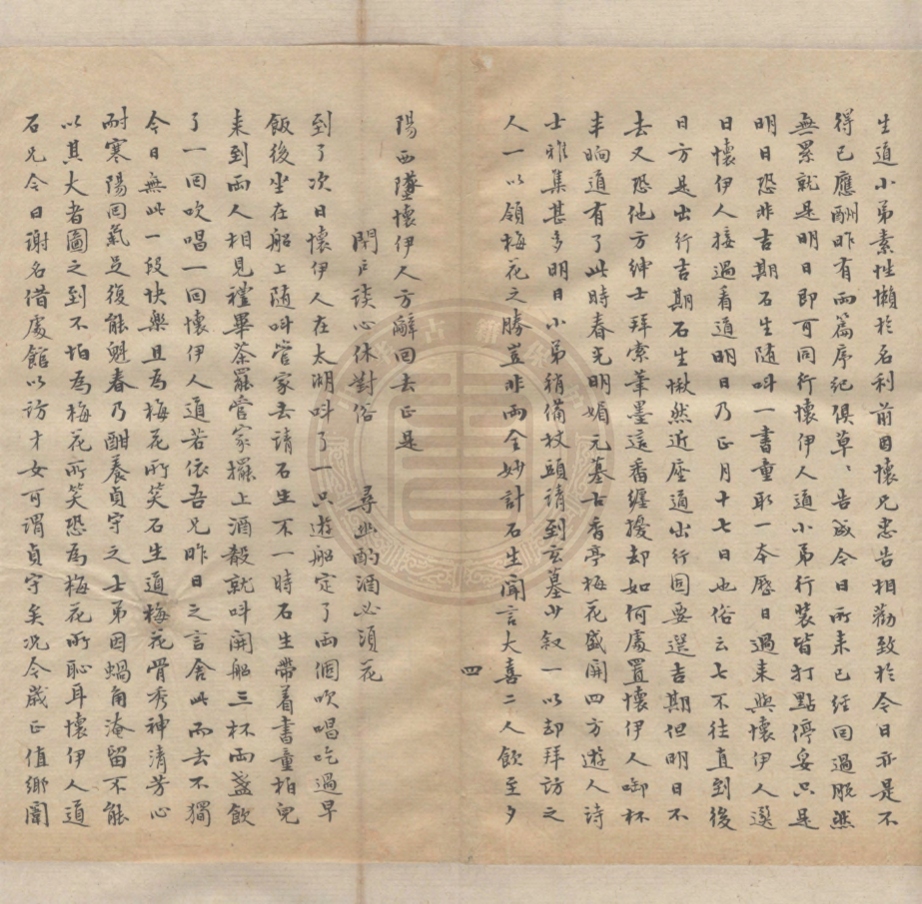 生道小弟素性懶於名利前因懷兄忠告相勸致於今日亦是不
得已應酬昨有兩篇序紀俱草、告成今日所來已經回過脫然
無累就是明日即可同行懷伊人道小弟行裝皆打點停妥只是
明日恐非吉期石生隨呌一書童取一本曆日過來與懷伊人選
日懷伊人接過看道明日乃正月十七日也俗云七不往直到後
日方是出行吉期石生愀然近座道出行固要選吉期但明日不
去又恐他方紳士拜索筆墨這番纏擾却如何處置懷伊人啣杯
半晌道有了此時春光明媚元墓古香亭梅花盛開四方遊人詩
士雅集甚多明日小弟稍備杖頭請到玄墓少叙一以却拜訪之
人一以領梅花之勝豈非兩全妙計石生聞言大喜二人飲至夕
四
陽西墜懷伊人方辭回去正是
閉戶談心休對俗　尋幽酌酒必須花
到了次日懷伊人在太湖呌了一只遊船定了兩個吹唱吃過早
飯後坐在船上隨呌管家去請石生不一時石生帶着書童柏兒
來到兩人相見禮畢茶罷管家擺上酒殽就呌開船三杯兩盞飲
了一回吹唱一回懷伊人道若依吾兄昨日之言舍此而去不獨
今日無此一段快樂且為梅花所笑石生道梅花骨秀神清芳心
耐寒陽回氣足復能魁春乃酣養貞守之士弟因蝸角淹留不能
以其大者圖之到不怕為梅花所笑恐為梅花所恥耳懷伊人道
石兄今日謝名借處館以訪才女可謂貞守矣况今歲正值鄉闈